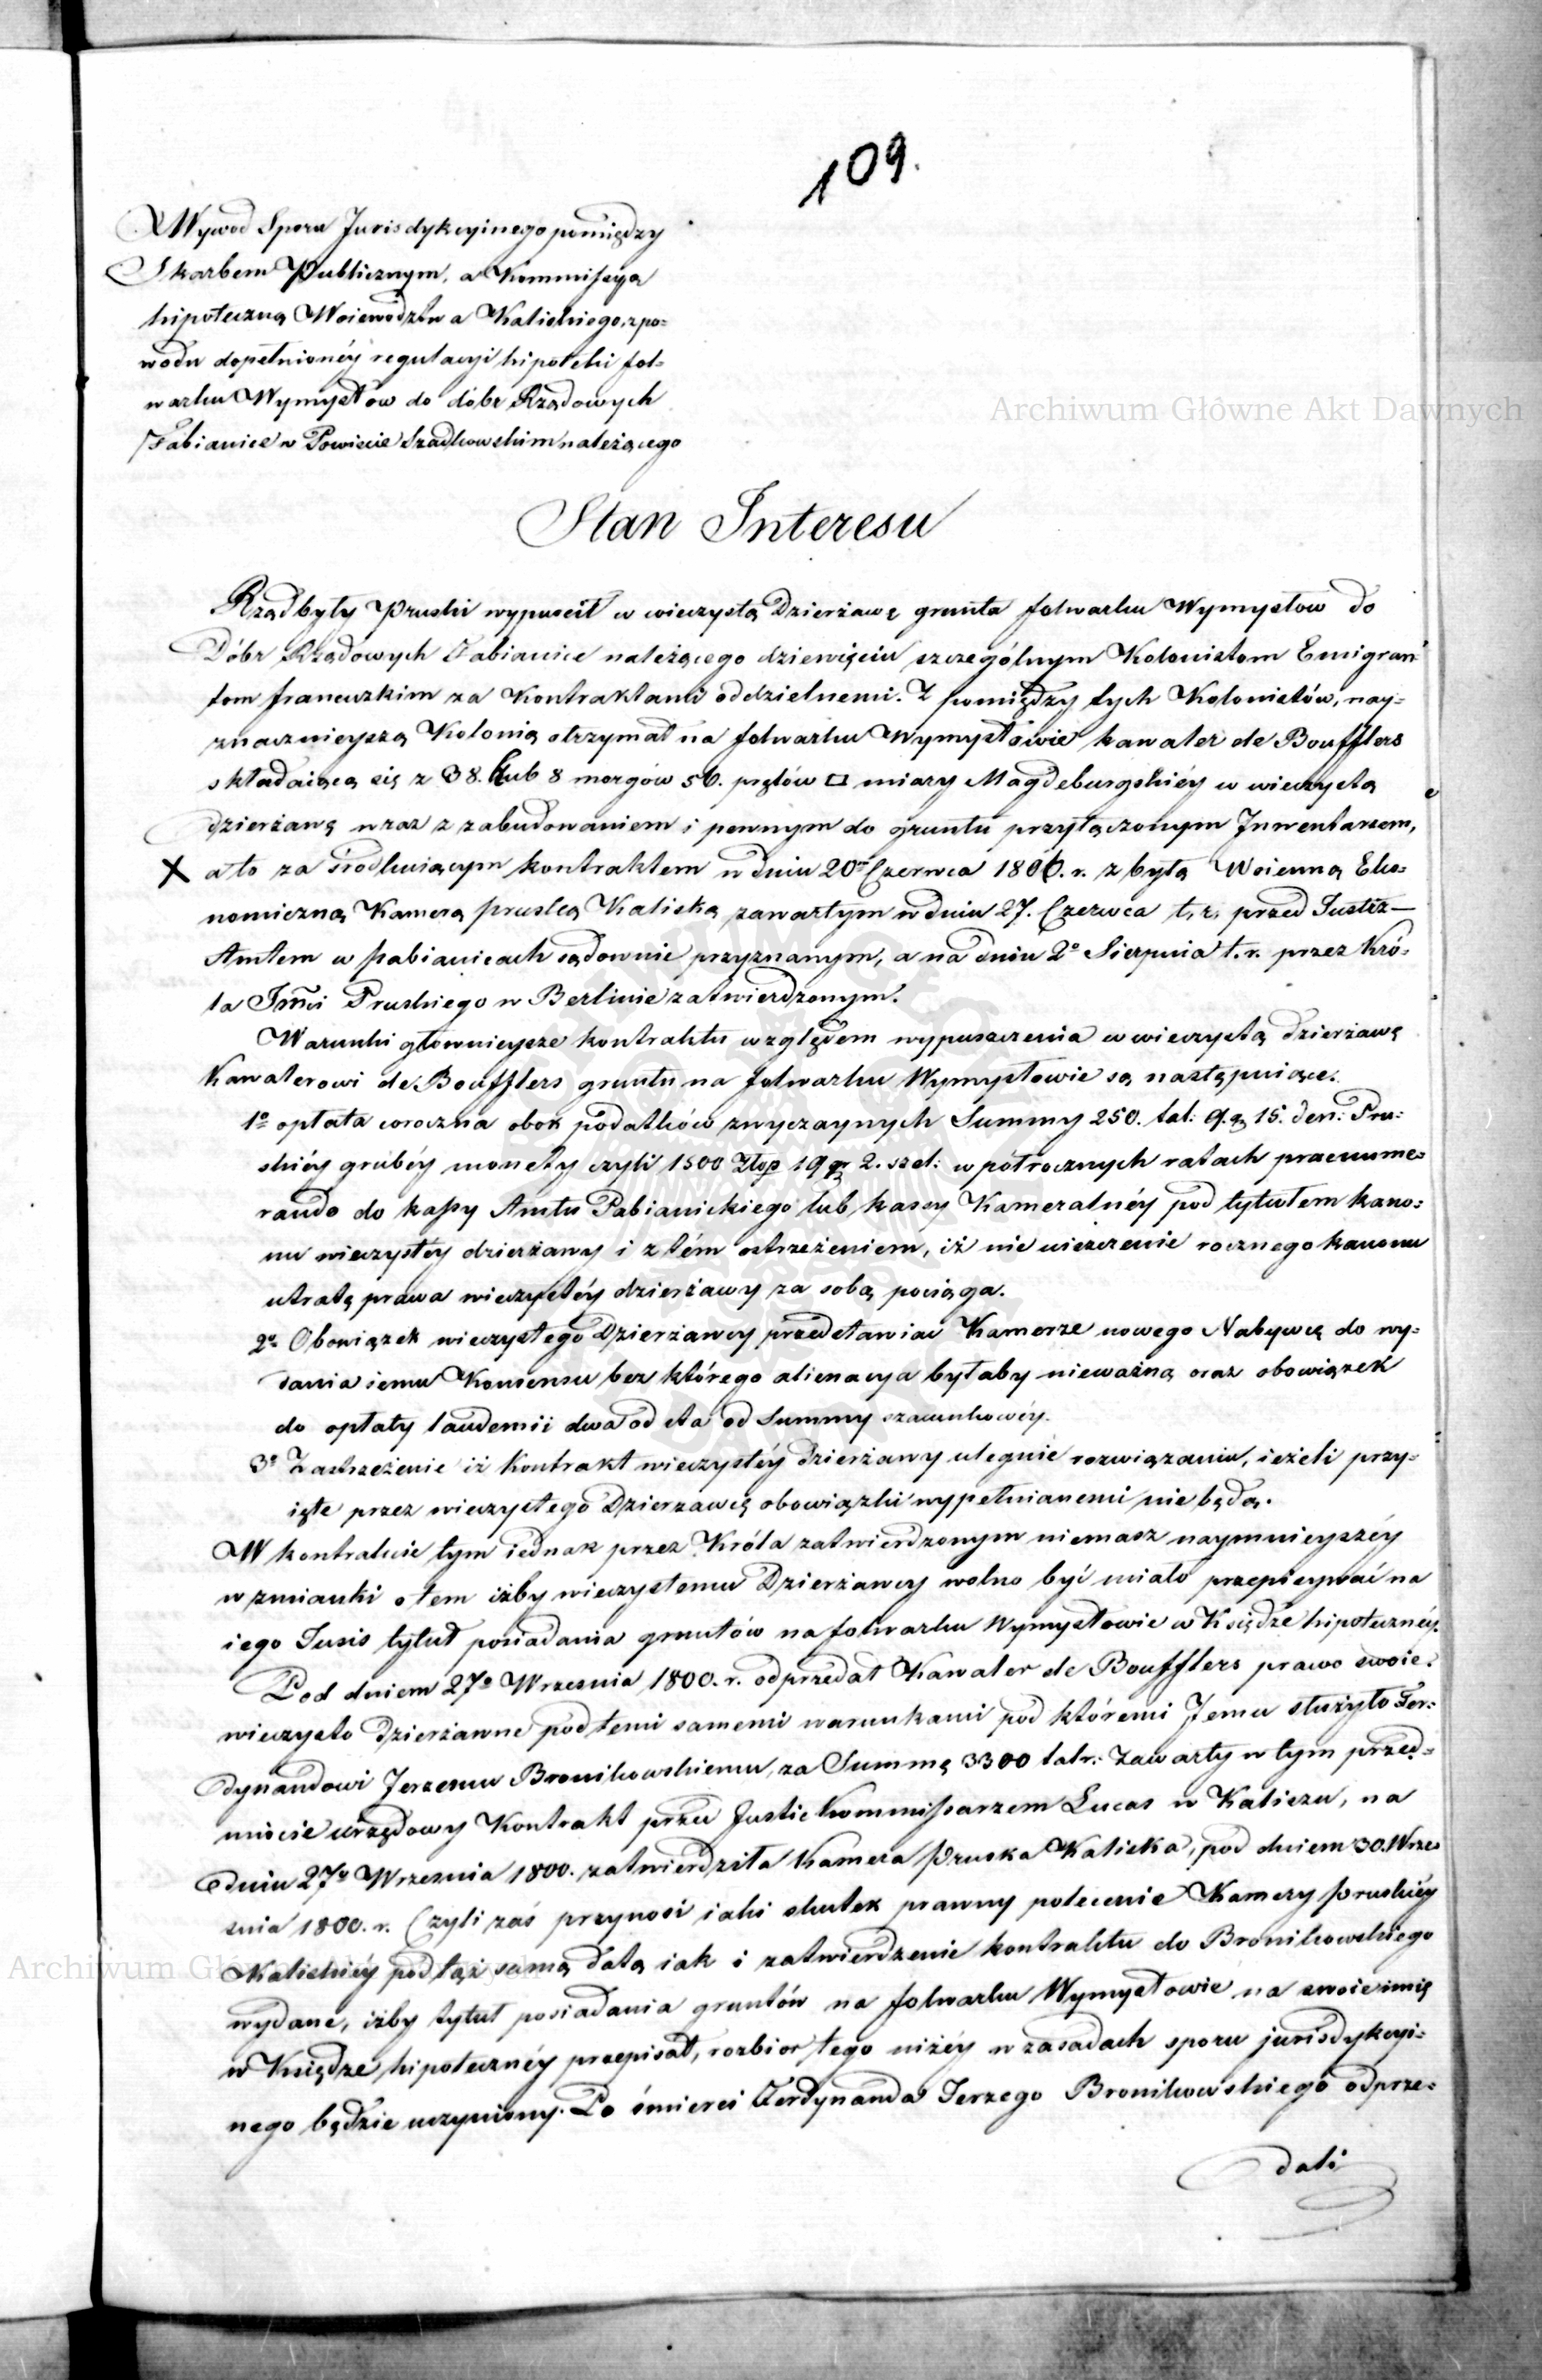 109.
Wywod Sporu Jurisdykcyinego pomiędzy
Skarbem Publicznym, a Kommissyą
hipoteczną Woiewództwa Kaliskiego, z po=
wodu dopełnionéy regulacyi hipoteki fol=
warku Wymysłow do dóbr Rządowych
Pabianice w Powiecie Szadkowskim należącego
Stan Interesu
Rząd były Pruski wypuścił w wieczystą Dzierżawę grunta folwarku Wymysłow do
Dóbr Rządowych Pabianice należącego dziewięciu szczególnym Kolonistom Emigran
tom francuzkim za Kontraktami oddzielnemi. Z pomiędzy tych Kolonistów, nay=
znacznieyszą Kolonią otrzymał na folwarku Wymysłowie kawaler de Boufflers
składaiącą się z 38. hub 8 morgów 56. prętów □ miary Magdeburgskiéy w wieczystą
dzierżawę wraz z zabudowaniem i pewnym do gruntu przyłączonym Inwentarzem,
X a to za środkuiącym kontraktem w dniu 20º Czerwca 1800. r. z byłą Woienną Eko=
nomiczną Kamerą pruską Kaliską zawartym w dniu 27. Czerwca t. r. przed Justiz—
Amtem w Pabianicach sądownie przyznanym, a na dniu 2º Sierpnia t. r. przez Kró=
la Jmći Pruskiego w Berlinie zatwierdzonym.
Warunki głównieysze kontraktu względem wypuszczenia w wieczystą dzierżawę
Kawalerowi de Boufflers gruntu na folwarku Wymysłowie są następuiące.
1º opłata coroczna obok podatków zwyczaynych Summy 250. tal: 9. gr 15. den: Pru=
skiéy grubéy monety czyli 1500 Złop 19 gr 2. szel: w półrocznych ratach praenume=
rando do kassy Amtu Pabianickiego lub kassy Kameralnéy pod tytułem kano=
nu wieczystey dzierżawy i z tém ostrzeżeniem, iż nie uiszczenie rocznego kanonu
utratę prawa wieczystéy dzierżawy za sobą pociąga.
2º Obowiązek wieczystego Dzierżawcy przedstawiać Kamerze nowego Nabywcę do wy=
dania iemu Konsensu bez którego alienacya byłaby nieważną oraz obowiązek
do opłaty laudemii dwa od sta od Summy szacunkowéy.
3º Zastrzeżenie iż kontrakt wieczystéy dzierżawy ulegnie rozwiązaniu, ieżeli przy=
ięte przez wieczystego Dzierzawcę obowiązki wypełnianemi nie będą.
W kontrakcie tym iednak przez Króla zatwierdzonym niemasz naymnieyszéy
wzmianki o tem iżby wieczystemu Dzierżawcy wolno być miało przepisywać na
iego Imie tytuł posiadania gruntów na folwarku Wymysłowie w Księdze hipotecznéy.
Pod dniem 27º Wrzesnia 1800. r. odprzedał Kawaler de Boufflers prawo swoie
wieczysto dzierżawne pod temi samemi warunkami pod któremi Jemu służyło Fer=
dynandowi Jerzemu Bronikowskiemu, za Summę 3300 talr: Zawarty w tym przed=
miocie urzędowy Kontrakt przed Justic kommissarzem Lucas w Kaliszu, na
dniu 27º Wrzesnia 1800. zatwierdziła Kamera Pruska Kaliska, pod dniem 30. Wrze=
snia 1800. r. Czyli zaś przynosi iaki skutek prawny polecenie Kamery pruskiéy
Kaliskiéy pod tąż samą datą iak i zatwierdzenie kontraktu do Bronikowskiego
wydane, iżby tytuł posiadania gruntów na folwarku Wymysłowie na swoie imię
w Księdze hipotecznéy przepisał, rozbior tego niżéy w zasadach sporu jurisdykcyi=
nego będzie uczyniony. Po śmierci Ferdynanda Jerzego Bronikowskiego odprze=
dali
Archiwum Główne Akt Dawnych